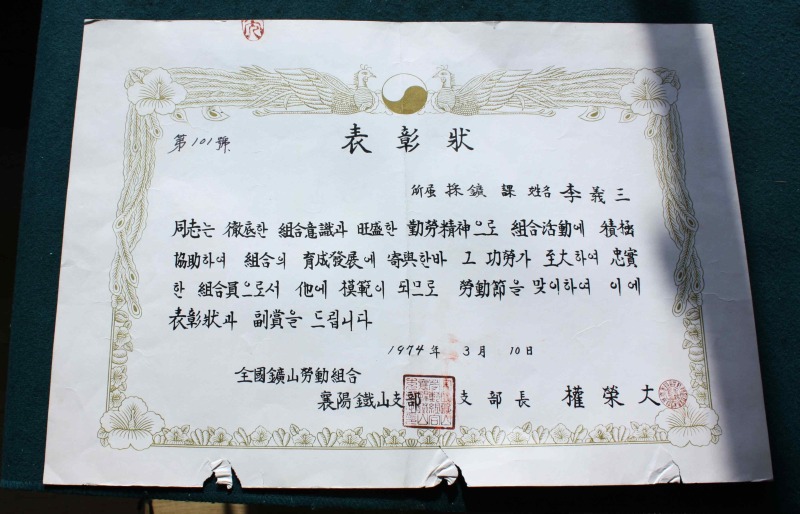 第101號
表彰狀
所属 採鑛 課 姓名 李義三
同志는 徹底한 組合意識과 旺盛한 勤勞精神으로 組合活動에 積極
協助하여 組合의 育成發展에 寄與한바 그 功勞가 至大하여 忠實
한 組合員으로서 他에 模範이 되므로 勞動節을 맞이하여 이에
表彰狀과 副賞을 드립니다
1974年 3月 10日
全國鑛山勞動組合
襄陽鐵山支部 支部長 權榮大